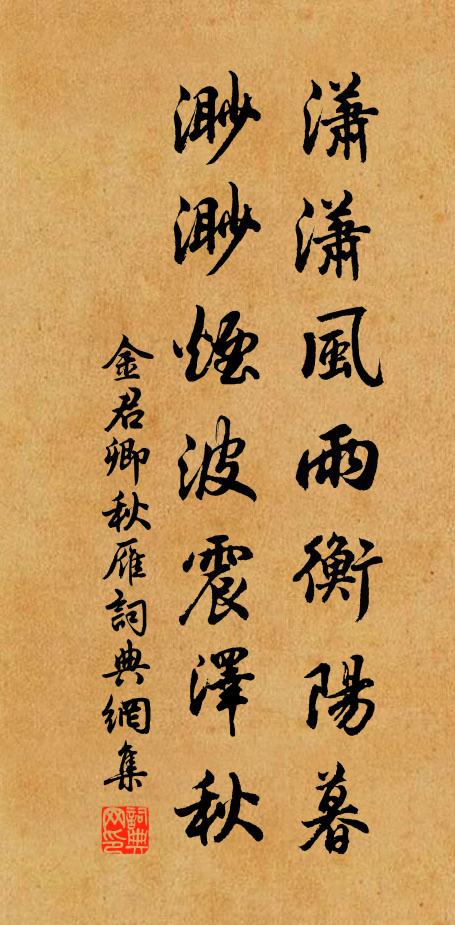 瀟瀟風雨衡陽暮
渺渺煙波震澤秋
金君卿秋雁詞典網集
詞典网印